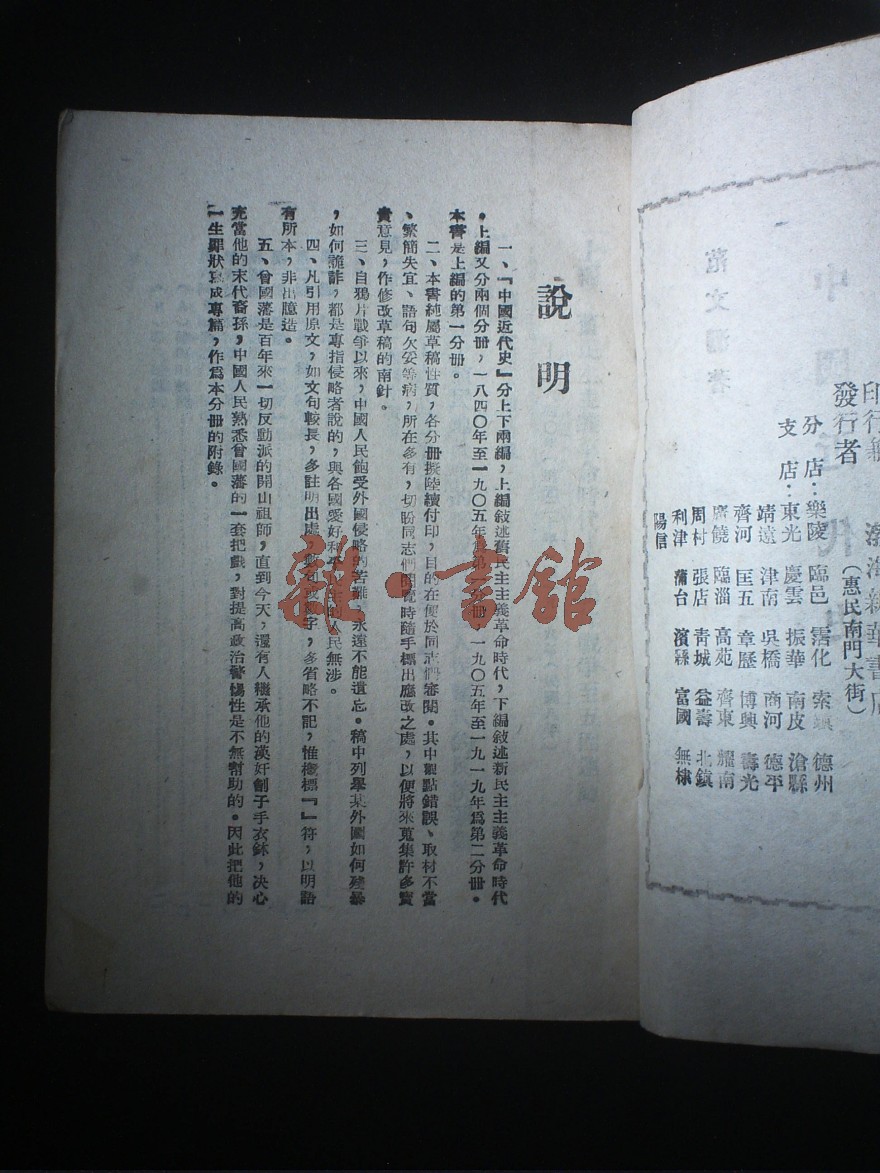 發行者 (惠民南門大街)
分店：樂陵 臨邑 霑化 索鎮 德州
支店：東光 慶雲 振華 南皮 滄縣
靖遠 津南 吳橋 商河 德平
齊河 匡五 章歷 博興 壽光
廣饒 臨淄 高苑 齊東 耀南
周村 張店 青城 益壽 北鎮
利津 蒲台 濱縣 富國 無棣
陽信
范文瀾著
說明
一、『中國近代史』分上下兩編，上編敘述舊民主主義革命時代，下編敘述新民主主義革命時代
。上編又分兩個分冊，一八四〇年至一九〇五年爲第一分冊，一九〇五年至一九一九年爲第二分冊。
本書是上編的第一分冊。
二、本書純屬草稿性質，各分冊擬陸續付印，目的在便於同志們審閱。其中觀點錯誤、取材不當
、繁簡失宜、語句欠妥等病，所在多有，切盼同志們閱覽時隨手標出應改之處，以便將來蒐集許多寶
貴意見，作修改草稿的南針。
三、自鴉片戰爭以來，中國人民飽受外國侵略的苦難，永遠不能遺忘。稿中列舉某外國如何殘暴
，如何詭詐，都是專指侵略者說的，與各國愛好和平民主的人民無涉。
四、凡引用原文，如文句較長，多註明出處，數句或數字，多省略不記，惟概標『』符，以明語
有所本，非出臆造。
五、曾國藩是百年來一切反動派的開山祖師，直到今天，還有人繼承他的漢奸劊子手衣鉢，决心
充當他的末代裔孫，中國人民熟悉曾國藩的一套把戲，對提高政治警惕性是不無幫助的。因此把他的
一生罪狀寫成專篇，作爲本分冊的附錄。
雜·書館